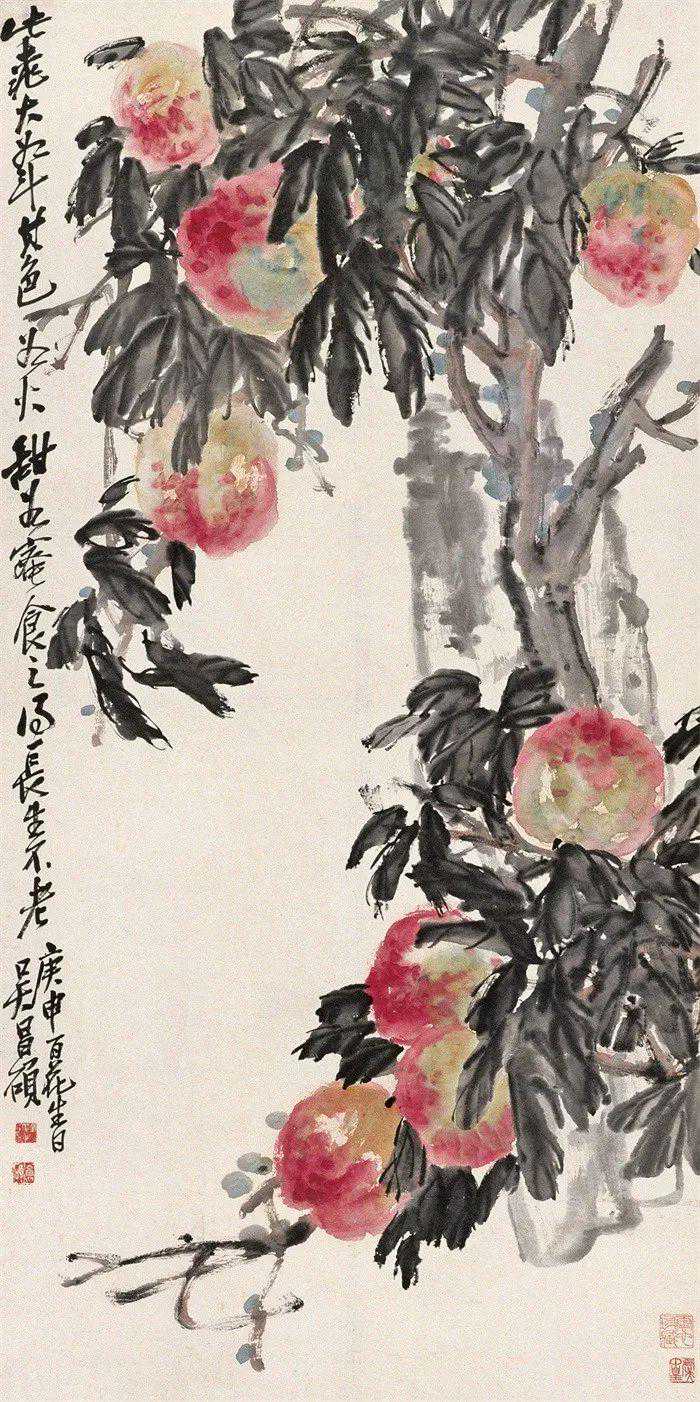 此桃大如斗其色如火甜如蜜食之得长生不老
庚申百花生日
吴昌硕